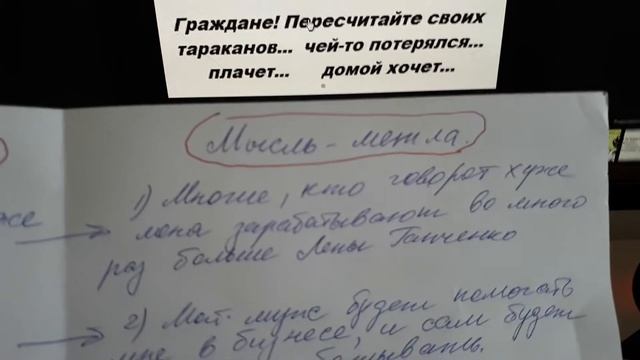 Граждане! Пересчитайте своих
тараканов... чей-то потерялся...
плачет... домой хочет...
Мысль - метла.
1) Многие, кто говорят хуже
меня зарабатывают во много
раз больше Лены
2) Мой муж будет помогать
мне в бизнесе, и сам будет